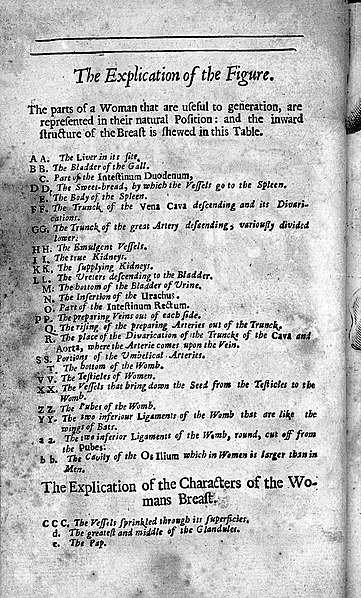 The Explication of the Figure.
The parts of a Woman that are useful to generation, are
represented in their natural Position: and the inward
structure of the Breast is shewed in this Table.
A A. The Liver in its site.
B B. The Bladder of the Gall.
C. Part of the Intestinum Duodenum,
D D. The Sweet-bread, by which the Vessels go to the Spleen.
E. The Body of the Spleen.
FF. The Trunck of the Vena Cava descending and its Divari-
cations.
GG. The Trunck of the great Artery descending, variously divided
lower.
HH. The Emulgent Vessels.
I I. The true Kidneys.
KK. The supplying Kidneys.
LL. The Ureters descending to the Bladder.
M. The bottom of the Bladder of Urine.
N. The Insertion of the Urachus.
O. Part of the Intestinum Rectum.
PP. The preparing Veins out of each side.
Q. The rising of the preparing Arteries out of the Trunck.
R. The place of the Divarication of the Trunck of the Cava and
Aorta, where the Arterie comes upon the Vein.
SS. Portions of the Umbelical Arteries.
T. The bottom of the Womb.
VV. The Testicles of Women.
XX. The Vessels that bring down the Seed from the Testicles to the
Womb.
ZZ. The Pubes of the Womb.
YY. The two inferiour Ligaments of the Womb that are like the
wings of Bats.
a a. The two inferior Ligaments of the Womb, round, cut off from
the Pubes:
b b. The Cavity of the Os Illium which in Women is larger than in
Men.
The Explication of the Characters of the Wo-
mans Breast.
C C C. The Vessels sprinkled through its superficies.
d. The greatest and middle of the Glandules.
e. The Pap.